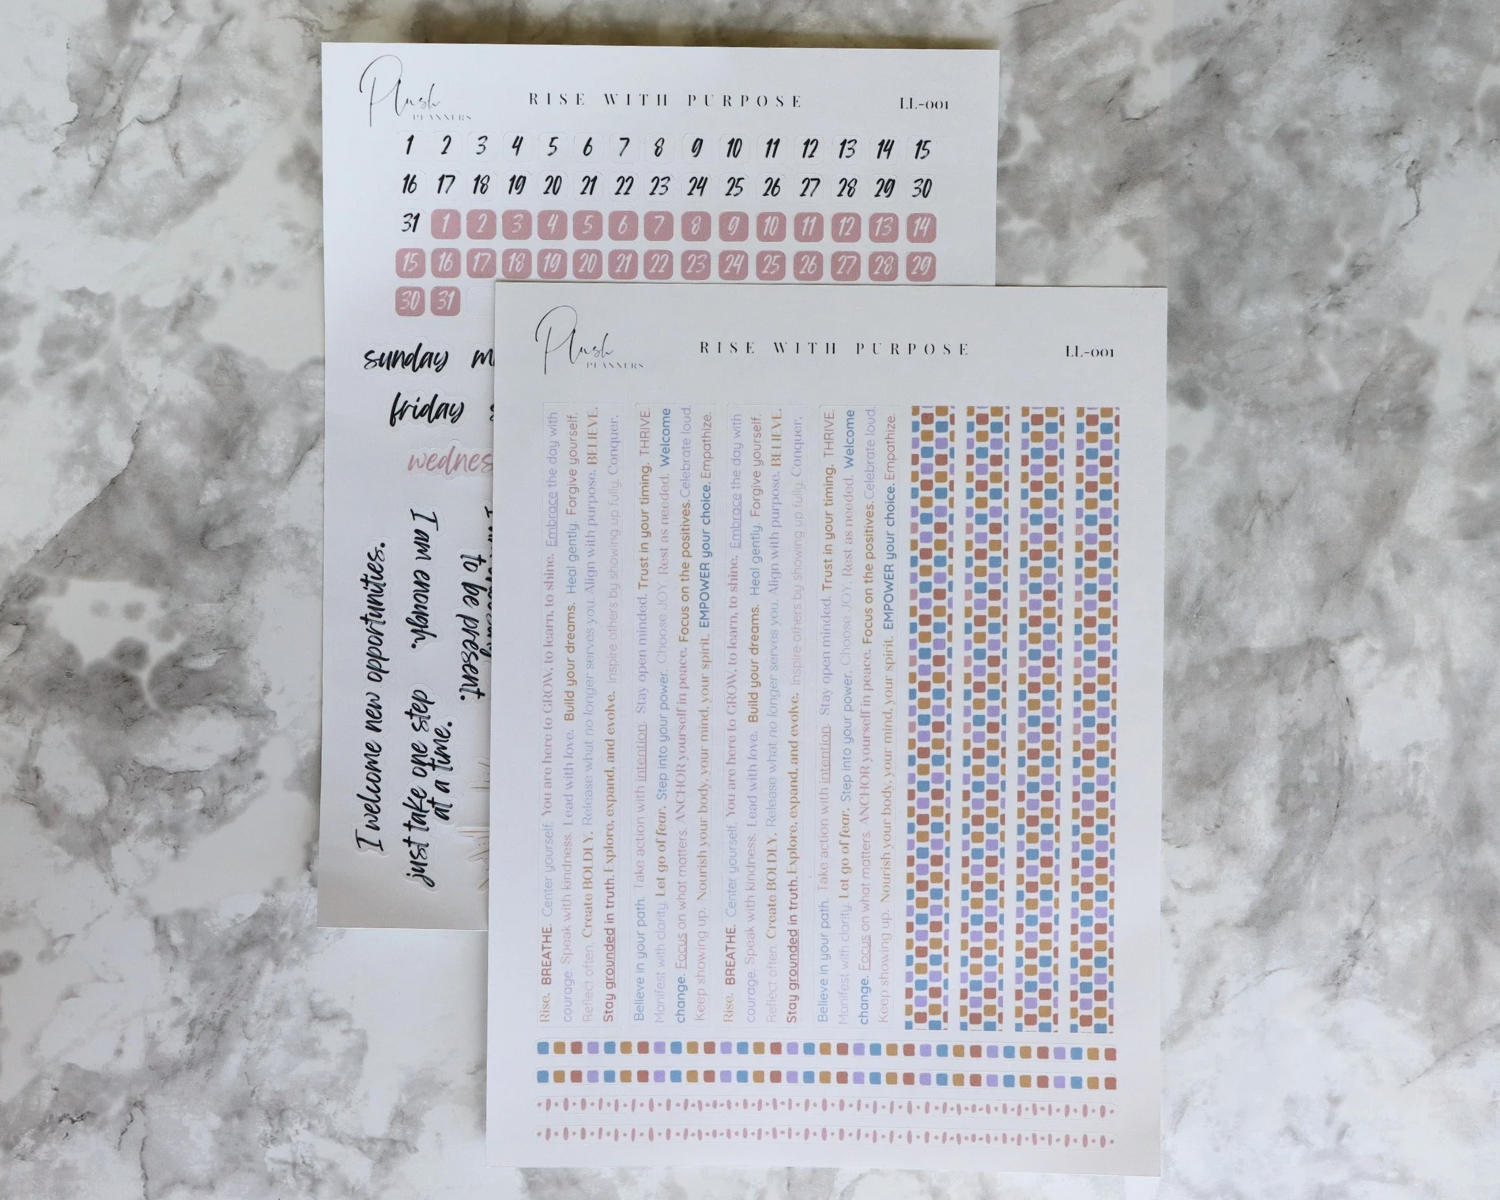 Plush
PLANNERS
RISE WITH PURPOSE
LL-001
1 2 3 4 5 6 7 8 9 10 11 12 13 14 15
16 17 18 19 20 21 22 23 24 25 26 27 28 29 30
31 1 2 3 4 5 6 7 8 9 10 11 12 13 14
15 16 17 18 19 20 21 22 23 24 25 26 27 28 29
30 31
sunday m
friday
wednes
I welcome new opportunities.
just take one step
at a time.
I am enough.
to be present.
Plush
PLANNERS
RISE WITH PURPOSE
LL-001
Rise. BREATHE. Center yourself. You are here to GROW, to learn, to shine. Embrace the day with
courage. Speak with kindness. Lead with love. Build your dreams. Heal gently. Forgive yourself.
Reflect often. Create BOLDLY. Release what no longer serves you. Align with purpose. BELIEVE.
Stay grounded in truth. Explore, expand, and evolve. Inspire others by showing up fully. Conquer.
Believe in your path. Take action with intention. Stay open minded. Trust in your timing. THRIVE.
Manifest with clarity. Let go of fear. Step into your power. Choose JOY. Rest as needed. Welcome
change. Focus on what matters. ANCHOR yourself in peace. Focus on the positives. Celebrate loud.
Keep showing up. Nourish your body, your mind, your spirit. EMPOWER your choice. Empathize.
Rise. BREATHE. Center yourself. You are here to GROW, to learn, to shine. Embrace the day with
courage. Speak with kindness. Lead with love. Build your dreams. Heal gently. Forgive yourself.
Reflect often. Create BOLDLY. Release what no longer serves you. Align with purpose. BELIEVE.
Stay grounded in truth. Explore, expand, and evolve. Inspire others by showing up fully. Conquer.
Believe in your path. Take action with intention. Stay open minded. Trust in your timing. THRIVE.
Manifest with clarity. Let go of fear. Step into your power. Choose JOY. Rest as needed. Welcome
change. Focus on what matters. ANCHOR yourself in peace. Focus on the positives. Celebrate loud.
Keep showing up. Nourish your body, your mind, your spirit. EMPOWER your choice. Empathize.